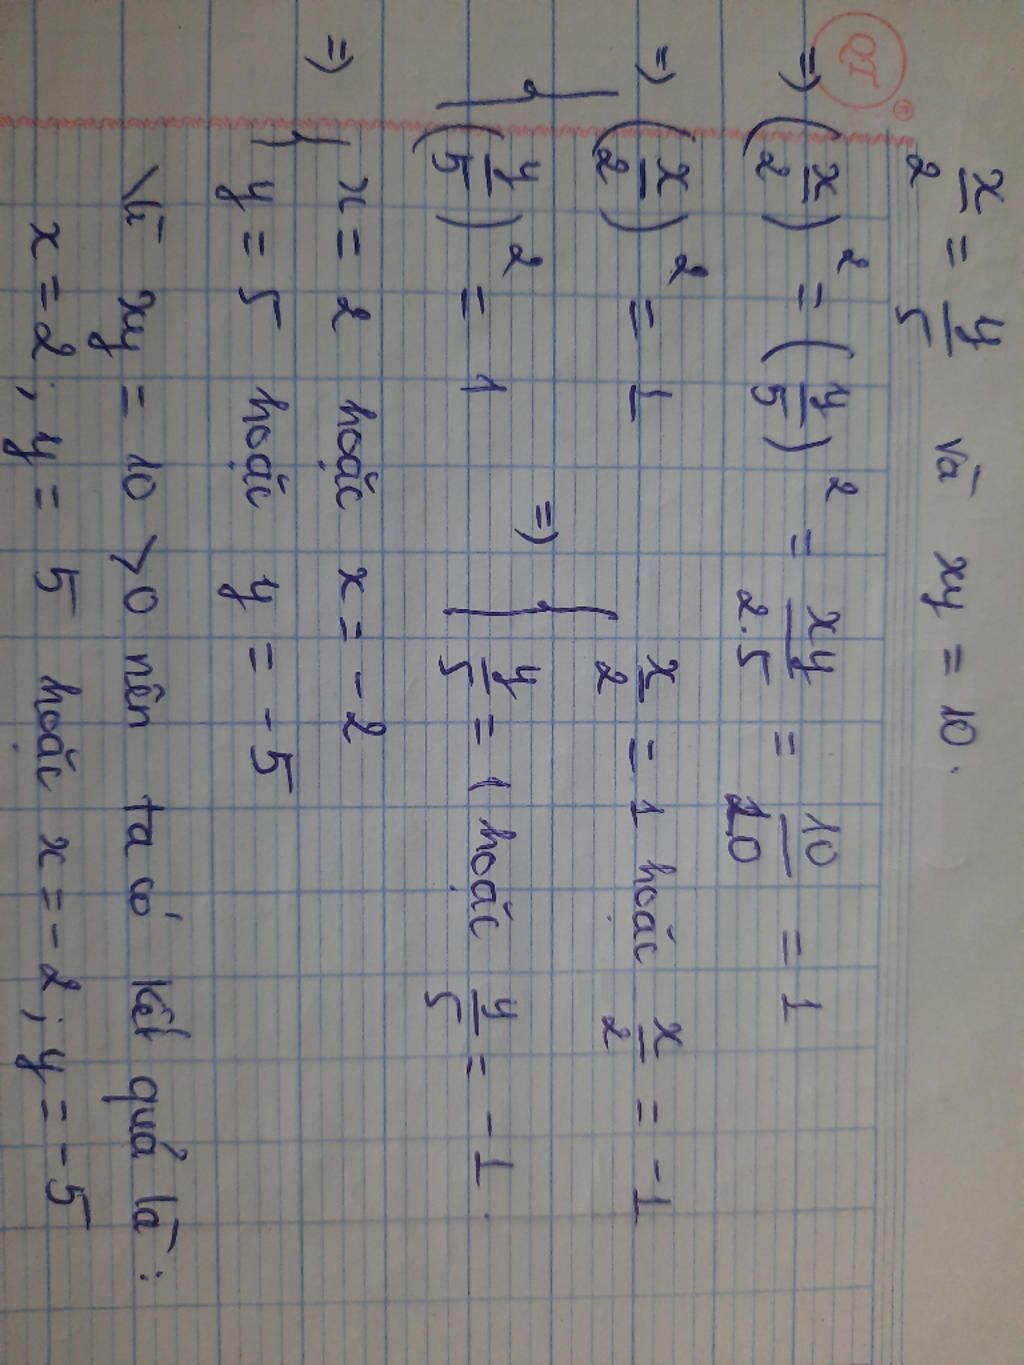 QT ®
x/2 = y/5 và xy = 10.
=> (x/2)² = (y/5)² = xy/2.5 = 10/10 = 1
=> { (x/2)² = 1 => { x/2 = 1 hoặc x/2 = -1
(y/5)² = 1 y/5 = 1 hoặc y/5 = -1.
=> { x = 2 hoặc x = -2
y = 5 hoặc y = -5
Vì xy = 10 > 0 nên ta có kết quả là :
x = 2 ; y = 5 hoặc x = -2 ; y = -5